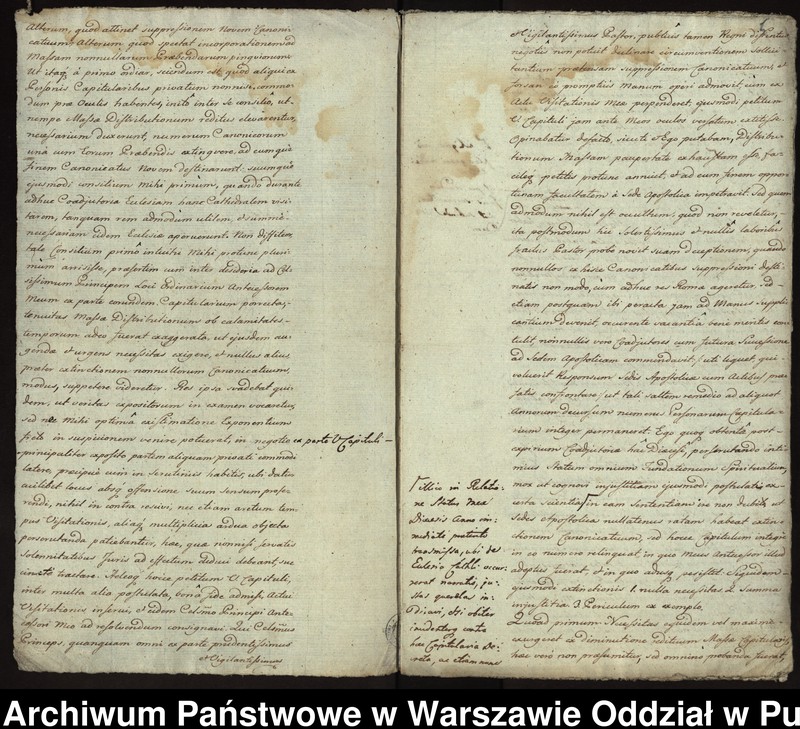 Alterum, quod attinet suppressionem Novem Canoni-
catuum, Alterum quod spectat incorporationem ad
Massam nonnullarum Præbendarum pinguiorum.
Ut itaq à primo ordiar, sciendum est, quod aliqui ex
Personis Capitularibus privatum nonnisi commo-
dum præ Oculis habentes, inito inter se consilio, ut-
nempe Massæ Distributionum reditus elevarentur,
necessarium duxerunt, numerum Canonicorum
una cum eorum Præbendis extinguere, ad eumque
finem Canonicatus Novem destinarunt, suumque
ejusmodi consilium Mihi primum, quando durante
adhuc Coadjutoria Ecclesiam hanc Cathedralem visi-
tarem, tanquam rem admodum utilem, et summè
necessariam eidem Ecclesiæ aperuerunt. Non diffiteor
tale Consilium primo intuitu Mihi protunc pluri-
mum arrisisse, præsertim cum inter desideria ad Cel-
sissimum Principem Loci Ordinarium Antecessorem
Meum ex parte eorundem Capitularium porrecta,
tenuitas Massæ Distributionum ob calamitates
temporum adeo fuerat exaggerata, ut ejusdem au-
gendæ et urgens necessitas exigere, et nullus alius
præter extinctionem nonnullorum Canonicatuum,
modus, suppetere videretur. Res ipsa svadebat qui-
dem, ut veritas expositorum in examen vocaretur,
sed nec Mihi optima existimatione Exponentium
fretô in suspicionem venire poterat, in negotio ex parte V. Capituli
principaliter exposito partem aliquam privati commodi
latere, præcipuè cum in Scrutiniis habitis, ubi datus
cuilibet locus absq offensione suum sensum profe-
rendi, nihil in contra rescivi, nec etiam arctum tem-
pus Visitationis, aliaq multiplicia ardua objecta
perscrutanda patiebantur, hæc, quæ nonnisi servatis
Solennitatibus Juris ad effectum deduci debeant, suc-
cinctè tractare. Adeoq hocce petitum V. Capituli,
inter multa alia postulata, bonâ fide admissi, Actui
Visitationis inserui, et eidem Celsmo Principi Ante-
cessori Meo ad resolvendum consignavi. Qui Celsmus
Princeps, quamquam omni ex parte prudentissimus
et Vigilantissimus
et Vigilantissimus Pastor, publicis tamen Regni distentus
negotiis non potuit declinare circumventionem sollici-
tantium prætensam suppressionem Canonicatuum, et
forsan eo promptius Manum operi admovit, cum ex
Actu Visitationis Meæ perpenderet, ejusmodi petitum
V. Capituli jam ante Meos oculos versatum extitisse.
Opinabatur defacto, sicuti et Ego putabam, Distribu-
tionum Massam paupertate exhaustam esse, fa-
cileq petitis protunc annuit, et ad eum finem oppor-
tunam facultatem à Sede Apostolica impetravit. Sed quem-
admodum nihil est occultum, quod non reveletur,
ita postmodum hic Solertissimus et nullis laboribus
fractus Pastor probe novit suam deceptionem, quando
nonnullos ex hisce Canonicatibus suppressioni desti-
natis non modo, cum adhuc res Romæ ageretur, sed
etiam postquam ibi peracta jam ad Manus suppli-
cantium devenit, occurente vacantiâ bene meritis con-
tulit, nonnullis vero Coadjutores cum futura Successione
ad Sedem Apostolicam commendavit, uti liquet, qui
voluerit Responsum Sedis Apostolicæ cum Actibus præ-
fatis confrontare, ut tali saltem remedio ad aliquot
Annorum decursum numerus Personarum Capitula-
rium integer permaneret. Ego quoq obtentâ post-
Coadjutoria hac Diæcesi, perscrutando inti-
mius Statum omnium Fundationum Spiritualium,
mox ut cognovi injustitiam ejusmodi postulati, ex
certa scientia, in eam Sententiam ire non dubito, ut
Sedes Apostolica nullatenus ratam habeat extin-
ctionem Canonicatuum, sed hocce Capitulum integre
in eo numero relinquat, in quo Meus Antecessor illud
adeptus fuerat, et in quo adusq persistet. Siquidem
ejusmodi extinctionis 1. nulla necessitas 2. summa
injustitia 3. Periculum ex exemplo.
Quoad primum. Necessitas ejusdem vel maxime
exurgeret ex diminutione redituum Massæ Capitularis,
hæc verò non præsumitur, sed omnino probanda fuerat,
Illico in Relatio-
ne Status Meæ
Diæcesis Anno im-
mediate præterito
transmissa, ubi de
Ecclesia Cathli occur-
rerat narratio, ju-
stas querelas in-
Dixeri, et obiter

hæc Capitularia De-
creta, ac etiam nunc
Archiwum Państwowe w Warszawie Oddział w Pu